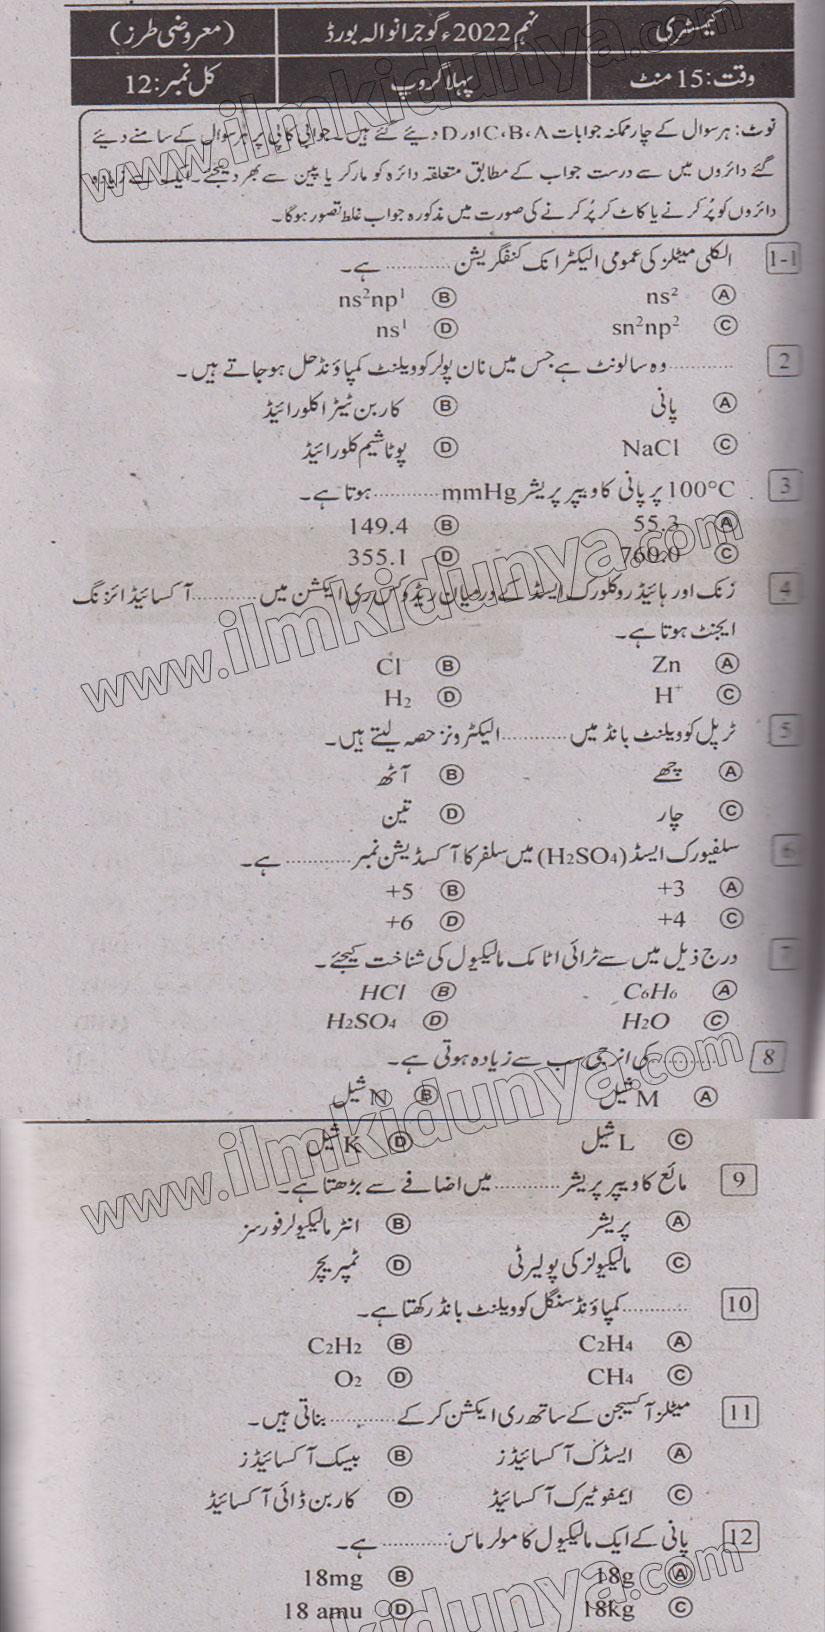 کیمسٹری نہم 2022ء گوجرانوالہ بورڈ (معروضی طرز)
وقت: 15 منٹ پہلا گروپ کل نمبر: 12
نوٹ: ہر سوال کے چار ممکنہ جوابات C، B، A اور D دیئے گئے ہیں۔ جوابی کاپی پر ہر سوال کے سامنے دیئے
گئے دائروں میں سے درست جواب کے مطابق متعلقہ دائرہ کو مارکر یا پین سے بھر دیجئے۔ ایک سے زیادہ
دائروں کو پُر کرنے یا کاٹ کر پُر کرنے کی صورت میں مذکورہ جواب غلط تصور ہوگا۔
1-1 الکلی میٹلز کی عمومی الیکٹرانک کنفگریشن ............ ہے۔
A ns² B ns²np¹
C sn²np² D ns¹
2 ............ وہ سالونٹ ہے جس میں نان پولر کوویلنٹ کمپاؤنڈ حل ہو جاتے ہیں۔
A پانی B کاربن ٹیٹرا کلورائیڈ
C NaCl D پوٹاشیم کلورائیڈ
3 100°C پر پانی کا ویپر پریشر mmHg ............ ہوتا ہے۔
A 55.3 B 149.4
C 760.0 D 355.1
4 زنک اور ہائیڈروکلورک ایسڈ کے درمیان ریڈوکس ری ایکشن میں ............ آکسائیڈائزنگ
ایجنٹ ہوتا ہے۔
A Zn B Cl
C H⁺ D H₂
5 ٹرپل کوویلنٹ بانڈ میں ............ الیکٹرونز حصہ لیتے ہیں۔
A چھے B آٹھ
C چار D تین
6 سلفیورک ایسڈ (H₂SO₄) میں سلفر کا آکسڈیشن نمبر ............ ہے۔
A +3 B +5
C +4 D +6
7 درج ذیل میں سے ٹرائی اٹامک مالیکیول کی شناخت کیجئے۔
A C₆H₆ B HCl
C H₂O D H₂SO₄
8 ............ کی انرجی سب سے زیادہ ہوتی ہے۔
A M شیل B N شیل
C L شیل D K شیل
9 مائع کا ویپر پریشر ............ میں اضافے سے بڑھتا ہے۔
A پریشر B انٹر مالیکیولر فورسز
C مالیکیولز کی پولیرٹی D ٹمپریچر
10 ............ کمپاؤنڈ سنگل کوویلنٹ بانڈ رکھتا ہے۔
A C₂H₄ B C₂H₂
C CH₄ D O₂
11 میٹلز آکسیجن کے ساتھ ری ایکشن کر کے ............ بناتی ہیں۔
A ایسڈک آکسائیڈز B بیسک آکسائیڈز
C ایمفوٹیرک آکسائیڈ D کاربن ڈائی آکسائیڈ
12 پانی کے ایک مالیکیول کا مولر ماس ............ ہے۔
A 18g B 18mg
C 18kg D 18 amu
www.ilmkidunya.com
www.ilmkidunya.com
www.ilmkidunya.com